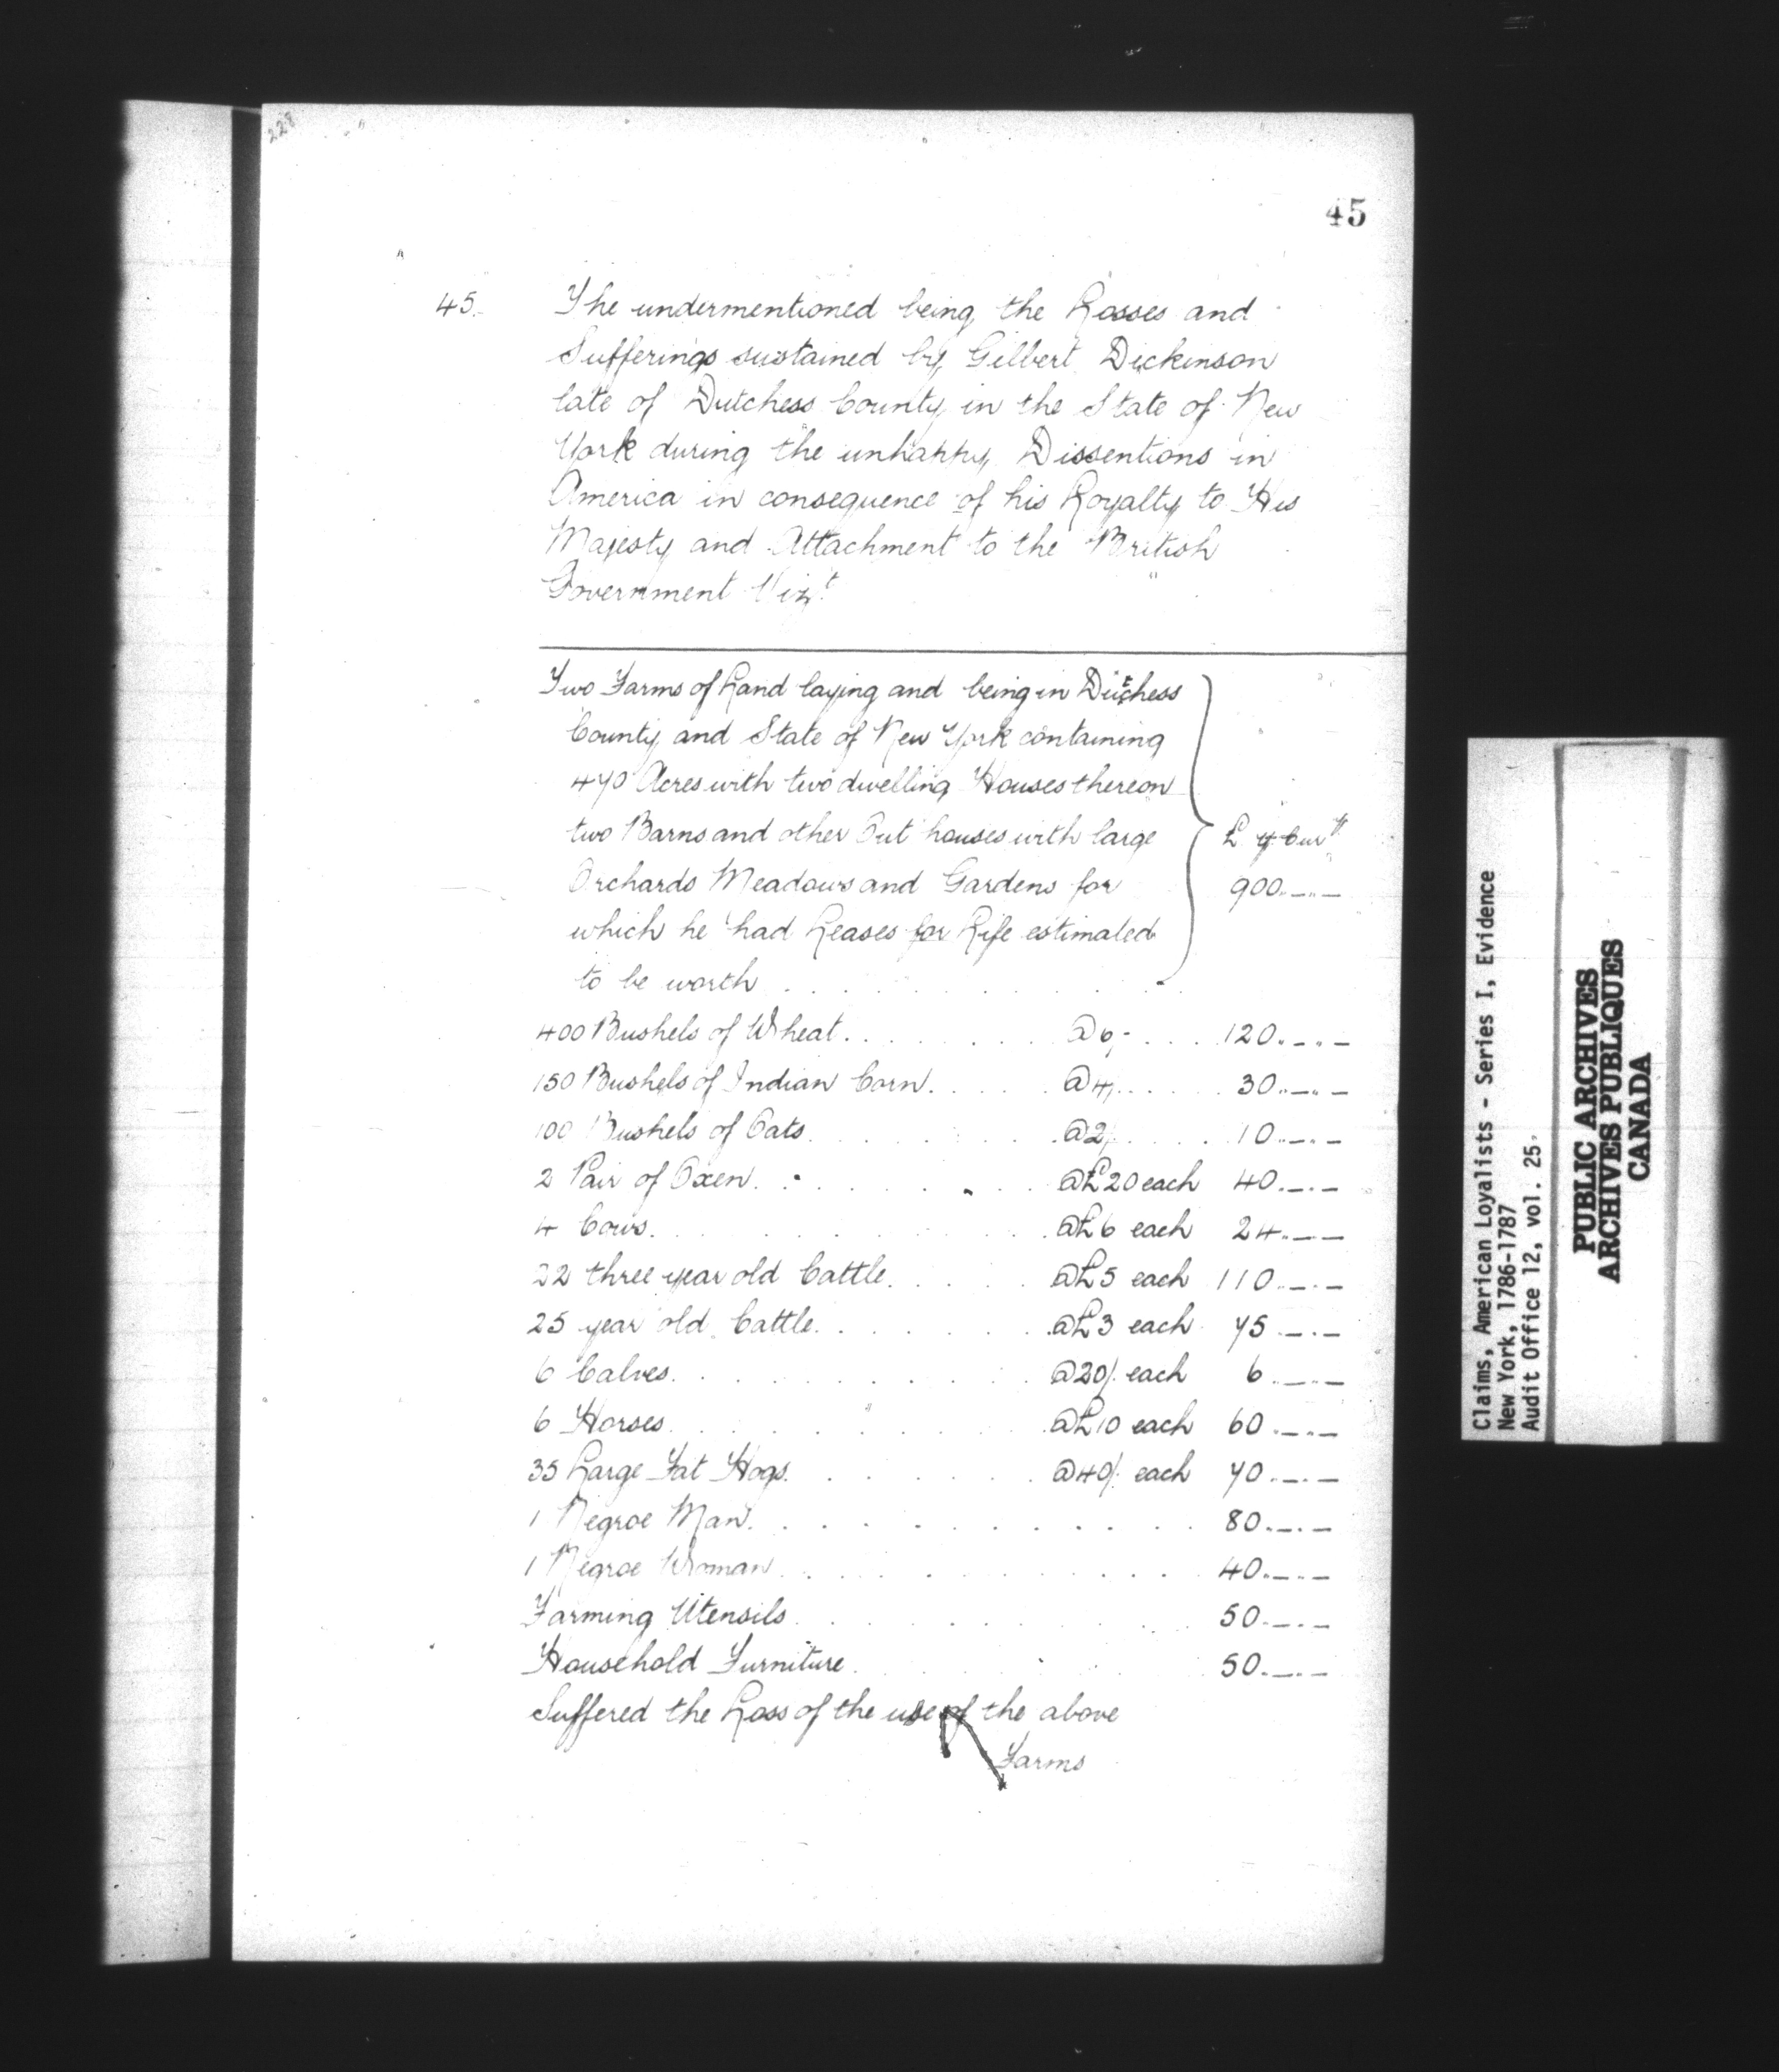 228
45
45. The undermentioned being the Losses and
Sufferings sustained by Gilbert Dickinson
late of Dutchess County in the State of New
York during the unhappy Dissentions in
America in consequence of his Loyalty to His
Majesty and Attachment to the British
Government Vizt
Two Farms of Land laying and being in Dutchess
County and State of New York containing
470 Acres with two dwelling Houses thereon
two Barns and other Out houses with large £ Y Curry
Orchards Meadows and Gardens for 900.–.–
which he had Leases for Life estimated
to be worth
400 Bushels of Wheat @ 6/- 120.–.–
150 Bushels of Indian Corn @ 4/. 30.–.–
100 Bushels of Oats @ 2/. 10.–.–
2 Pair of Oxen @ £20 each 40.–.–
4 Cows @ £6 each 24.–.–
22 three year old Cattle @ £5 each 110.–.–
25 year old Cattle @ £3 each 75.–.–
6 Calves @ 20/. each 6.–.–
6 Horses @ £10 each 60.–.–
35 Large Fat Hogs @ 40/. each 70.–.–
1 Negroe Man 80.–.–
1 Negroe Woman 40.–.–
Farming Utensils 50.–.–
Household Furniture 50.–.–
Suffered the Loss of the use of the above
Farms
Claims, American Loyalists - Series I, Evidence
New York, 1786-1787
Audit Office 12, vol. 25.
PUBLIC ARCHIVES
ARCHIVES PUBLIQUES
CANADA